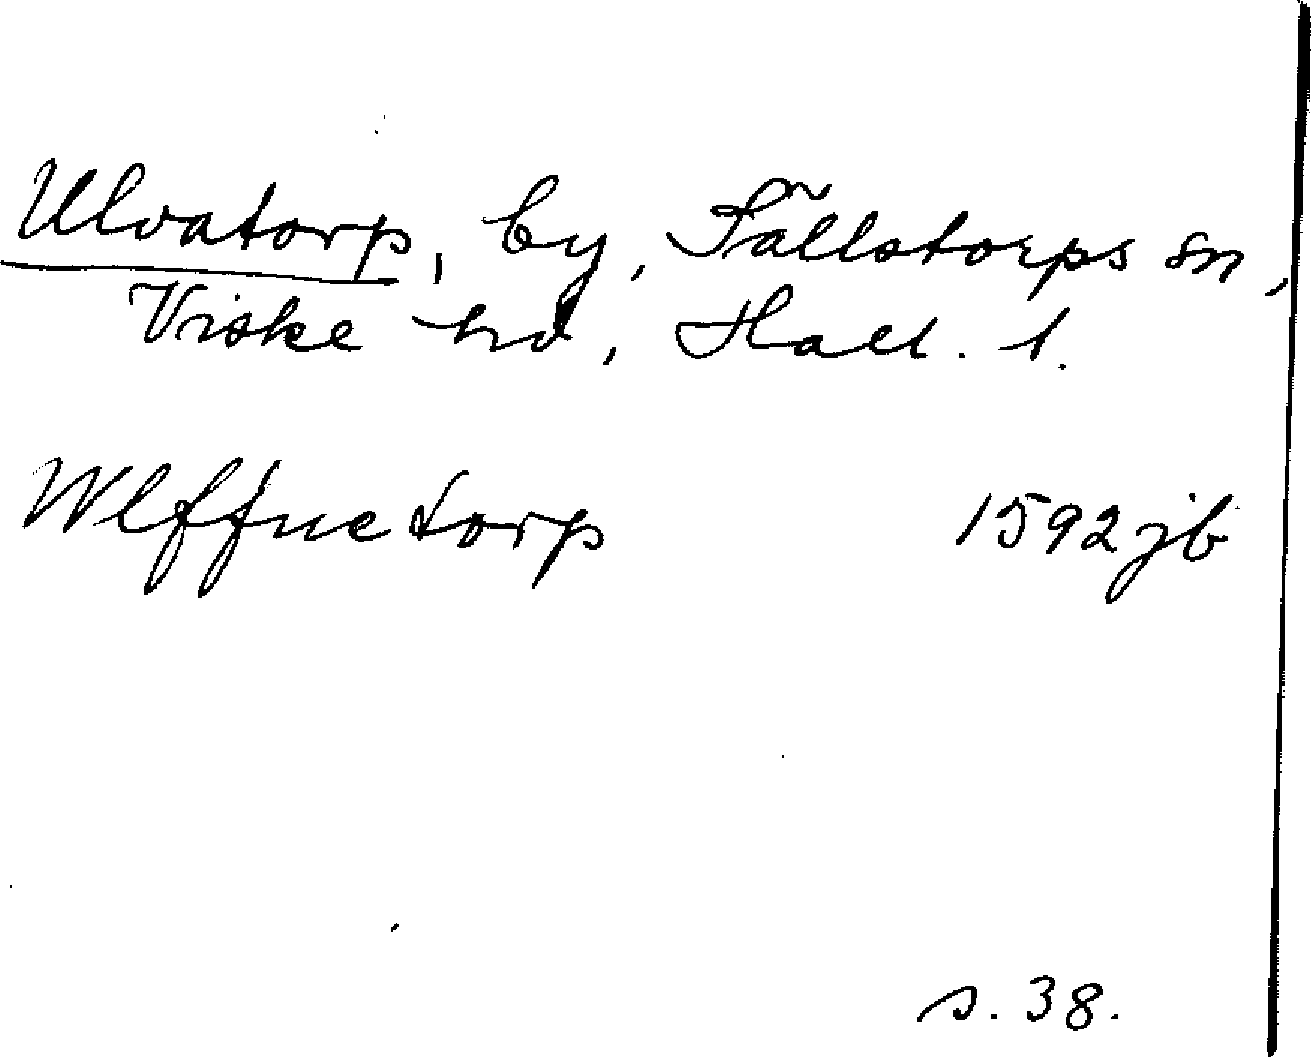 Ulvatorp, by, Sällstorps sn,
Viske hd, Hall. l.
Wlffuetorp 1592 jb
s. 38.